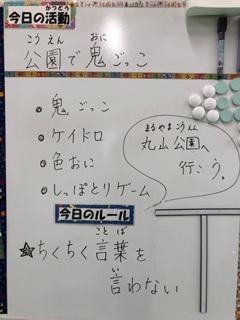 かつどう
今日の活動
こうえん おに
公園で鬼ごっこ
鬼ごっこ
ケイドロ
色おに
しっぽとりゲーム
まるやまこうえん
丸山公園へ
行こう。
今日のルール
ことば
★ちくちく言葉を
い
言わない